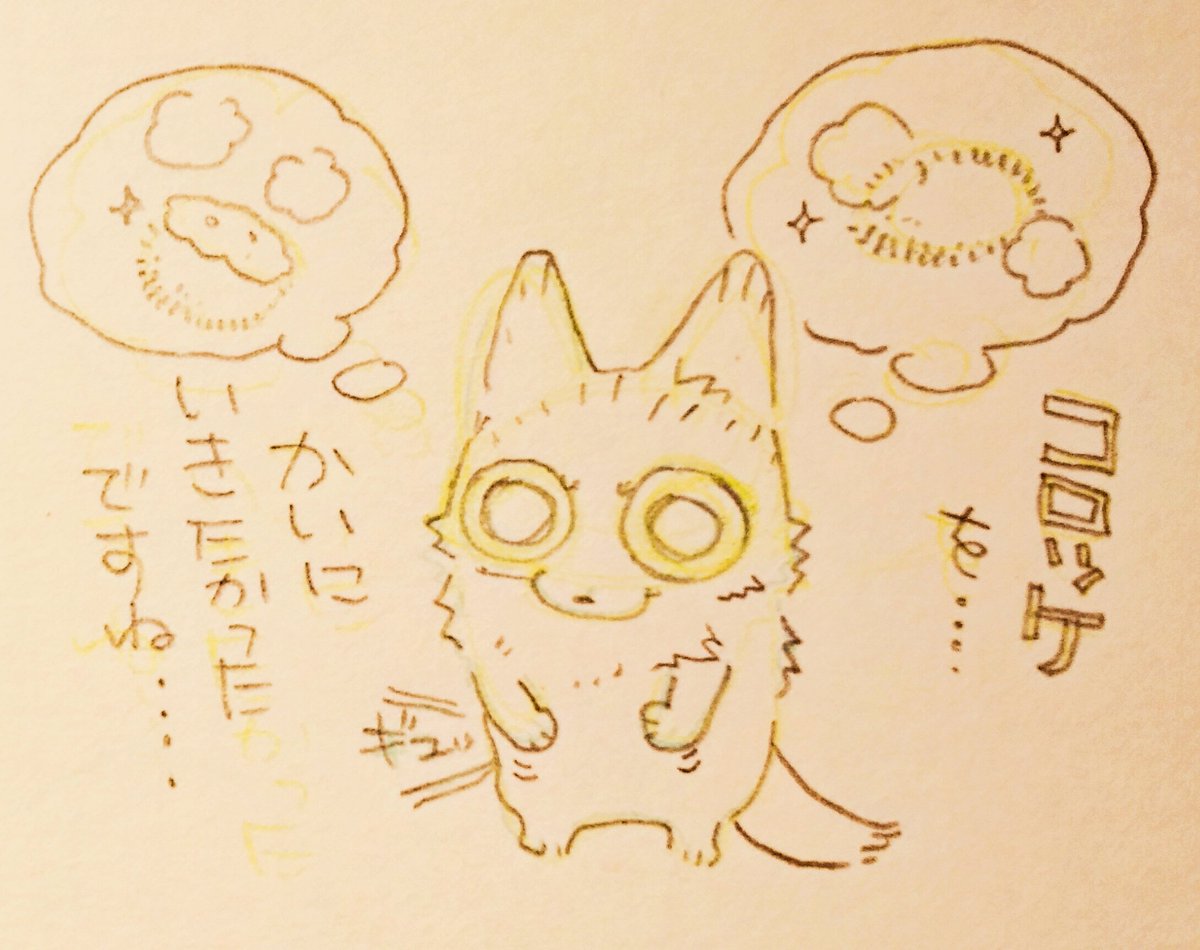 コロッケ
を…
かいに
いきたかった
ですね……
ギュ